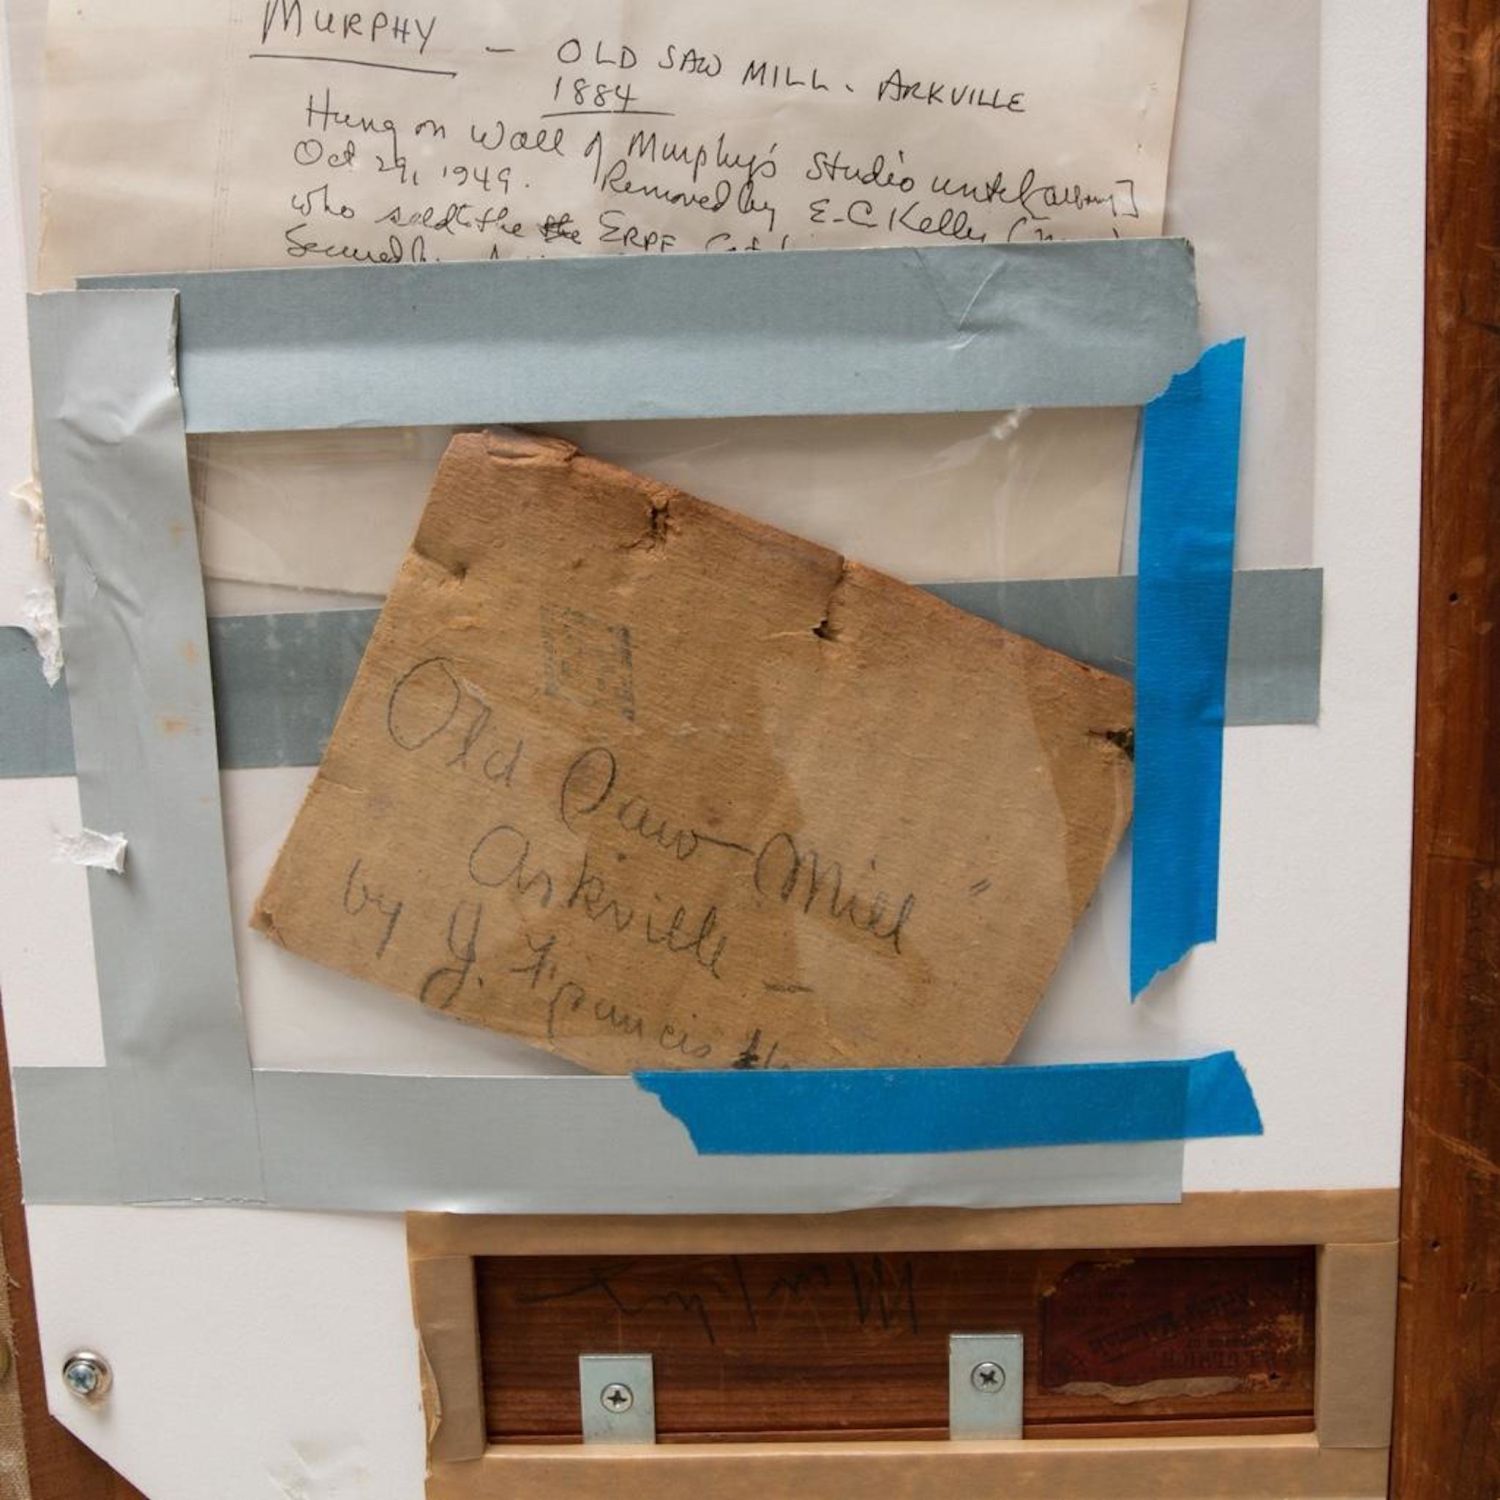 MURPHY - OLD SAW MILL. ARKVILLE
1884
Hung on Wall of Murphy's Studio until
Oct 29, 1949. Removed by E.C. Kelly
who sold the the ERPF
Secured
Old Saw-Mill"
Arkville -
by J. Francis
Murphy